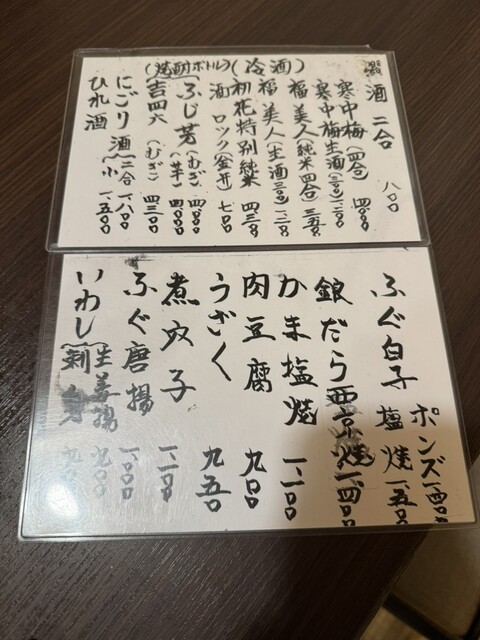 酒 二合 八〇〇
寒中梅(四合) 四〇〇〇
寒中梅生酒(三〇〇)一、二〇〇
福美人純米四合 三、五〇〇
福美人(生酒三〇〇)一、二〇〇
初花特別純米 四、三〇〇
酒ロック(釜井) 七〇〇
(冷酒)
(焼酎ボトル)
ふじ芳(むぎ)四〇〇〇
(芋)四〇〇〇
吉四六(むぎ)四三〇〇
にごり酒 二合 一、八〇〇
小
ひれ酒 一、五〇〇
ふぐ白子 ポンズ一、四〇〇
塩焼 一、五〇〇
銀だら西京焼 一、四〇〇
かま塩焼 一、一〇〇
肉豆腐 九〇〇
うざく 九五〇
煮穴子 一、二〇〇
ふぐ唐揚 一、〇〇〇
いわし 生姜揚 九〇〇
刺身 九〇〇